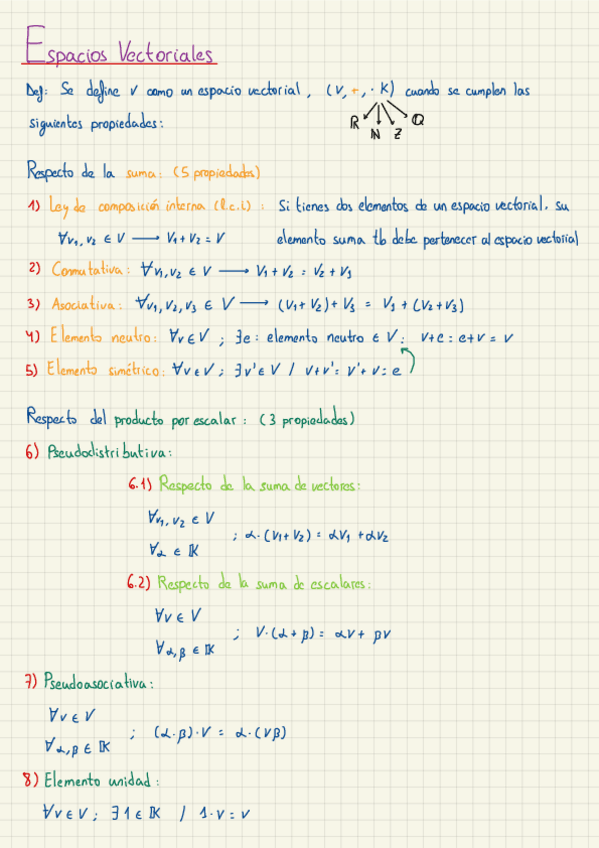 Espacios Vectoriales
Def: Se define V como un espacio vectorial, (V, +, · K) cuando se cumplen las
siguientes propiedades:
R N Z Q
Respecto de la suma: (5 propiedades)
1) Ley de composición interna (l.c.i): Si tienes dos elementos de un espacio vectorial, su
∀v₁, v₂ ∈ V → V₁ + V₂ = V elemento suma tb debe pertenecer al espacio vectorial
2) Conmutativa: ∀v₁, v₂ ∈ V → V₁ + V₂ = V₂ + V₁
3) Asociativa: ∀v₁, v₂, v₃ ∈ V → (V₁ + V₂) + V₃ = V₁ + (V₂ + V₃)
4) Elemento neutro: ∀v ∈ V ; ∃e: elemento neutro ∈ V: v+e = e+v = v
5) Elemento simétrico: ∀v ∈ V ; ∃v' ∈ V / v+v' = v'+v = e
Respecto del producto por escalar: (3 propiedades)
6) Pseudodistributiva:
6.1) Respecto de la suma de vectores:
∀v₁, v₂ ∈ V
; α·(V₁+V₂) = αV₁ + αV₂
∀α ∈ K
6.2) Respecto de la suma de escalares:
∀v ∈ V
; V·(α+β) = αV + βV
∀α, β ∈ K
7) Pseudoasociativa:
∀v ∈ V
; (α·β)·V = α·(Vβ)
∀α, β ∈ K
8) Elemento unidad:
∀v ∈ V ; ∃1 ∈ K / 1·v = v